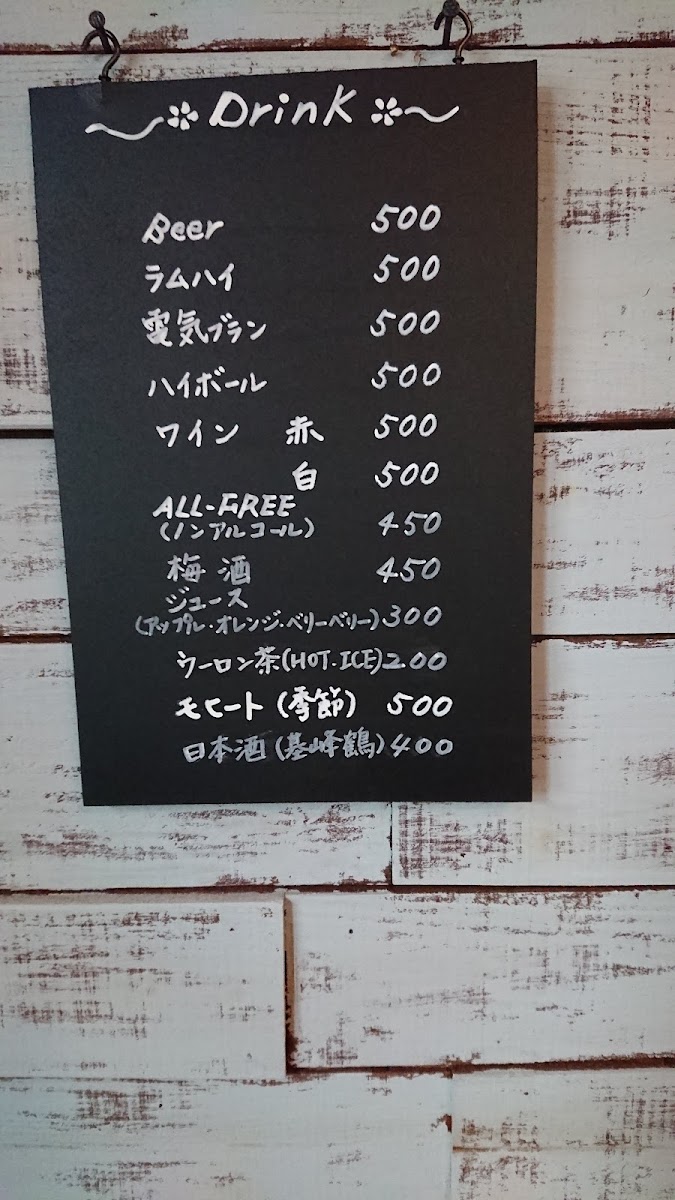 Drink
Beer 500
ラムハイ 500
電気ブラン 500
ハイボール 500
ワイン 赤 500
白 500
ALL-FREE
(ノンアルコール) 450
梅酒 450
ジュース
(アップル・オレンジ・ベリーベリー) 300
ウーロン茶(HOT・ICE) 200
モヒート(季節) 500
日本酒(基峰鶴) 400